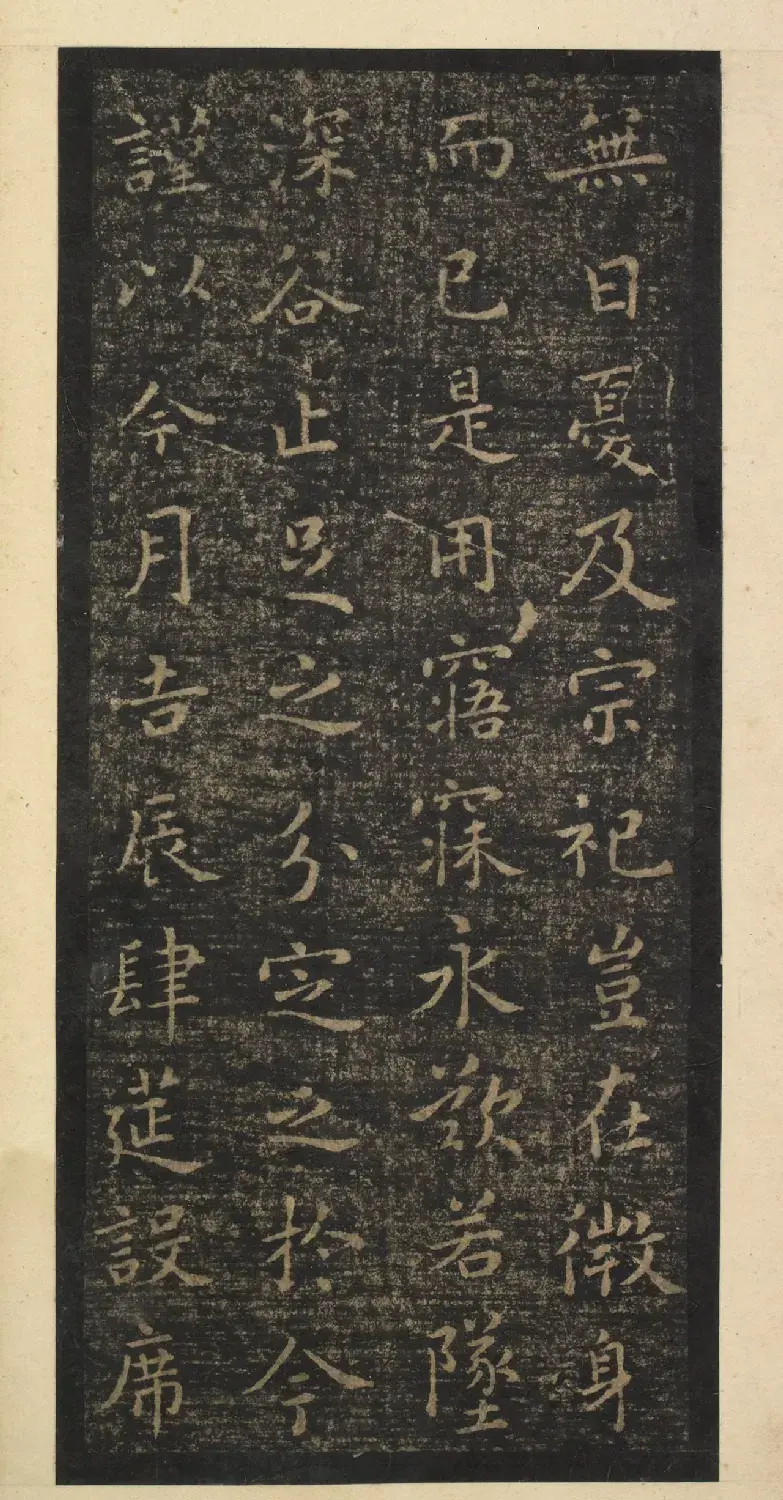 無日憂及宗祀豈在微身
而已是用寤寐永歎若墜
深谷止足之分定之於今
謹以今月吉辰肆莚設席